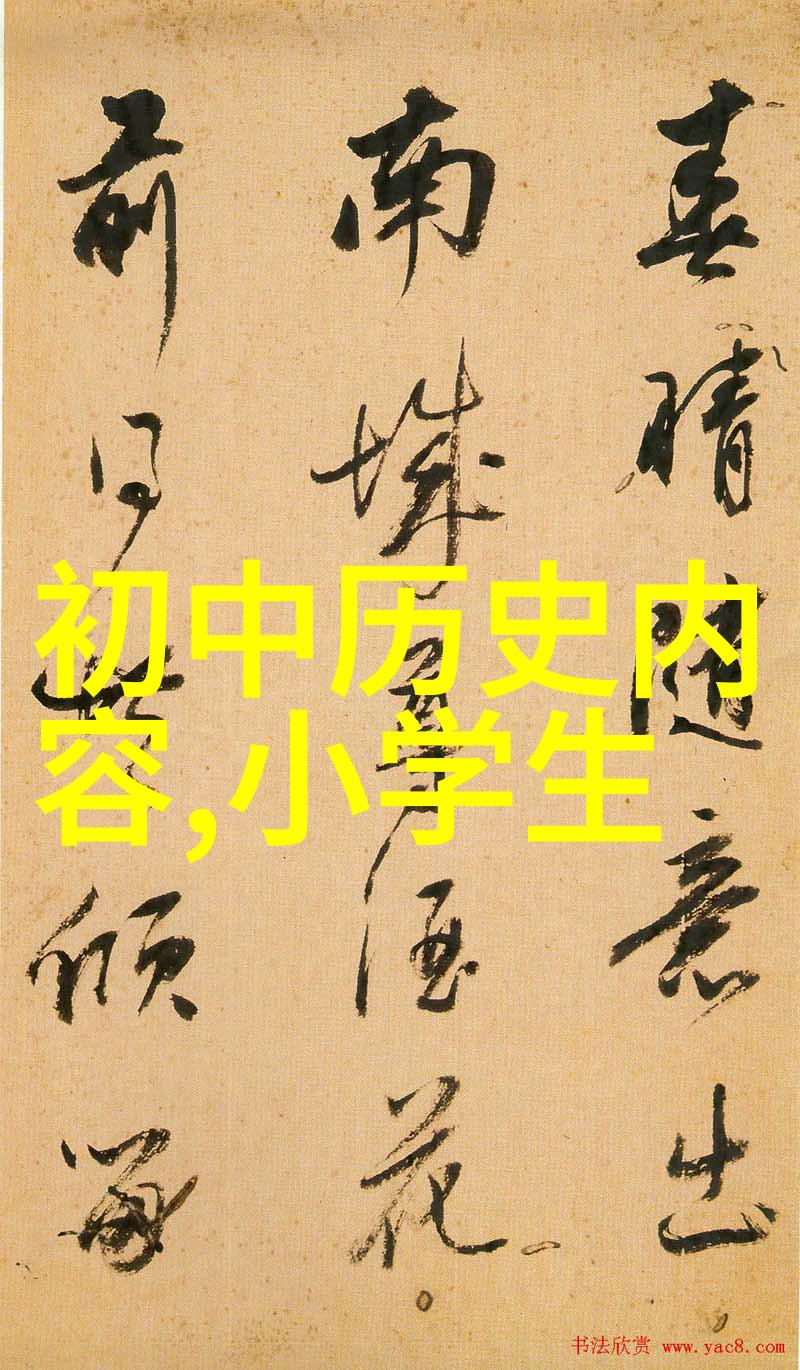 春晴随意出
南城尊酒花
前傾留
初中历史内
容,小学生
书法欣赏 www.yac8.com